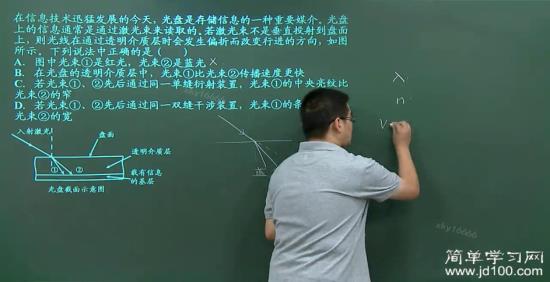 在信息技术迅猛发展的今天，光盘是存储信息的一种重要媒介。光盘
上的信息通常是通过激光束来读取的，若激光束不是垂直投射到盘面
上，则光线在通过透明介质层时会发生偏折而改变行进的方向，如图
所示。下列说法中正确的是（ ）
A. 图中光束①是红光，光束②是蓝光 ×
B. 在光盘的透明介质层中，光束①比光束②传播速度更快
C. 若光束①、②先后通过同一单缝衍射装置，光束①的中央亮纹比
光束②的窄
D. 若光束①、②先后通过同一双缝干涉装置，光束①的条
光束②的宽
入射激光
盘面
透明介质层
① ②
载有信息
的基层
光盘截面示意图
λ
n
v
xky16666
xky16666
简单学习网
www.jd100.com